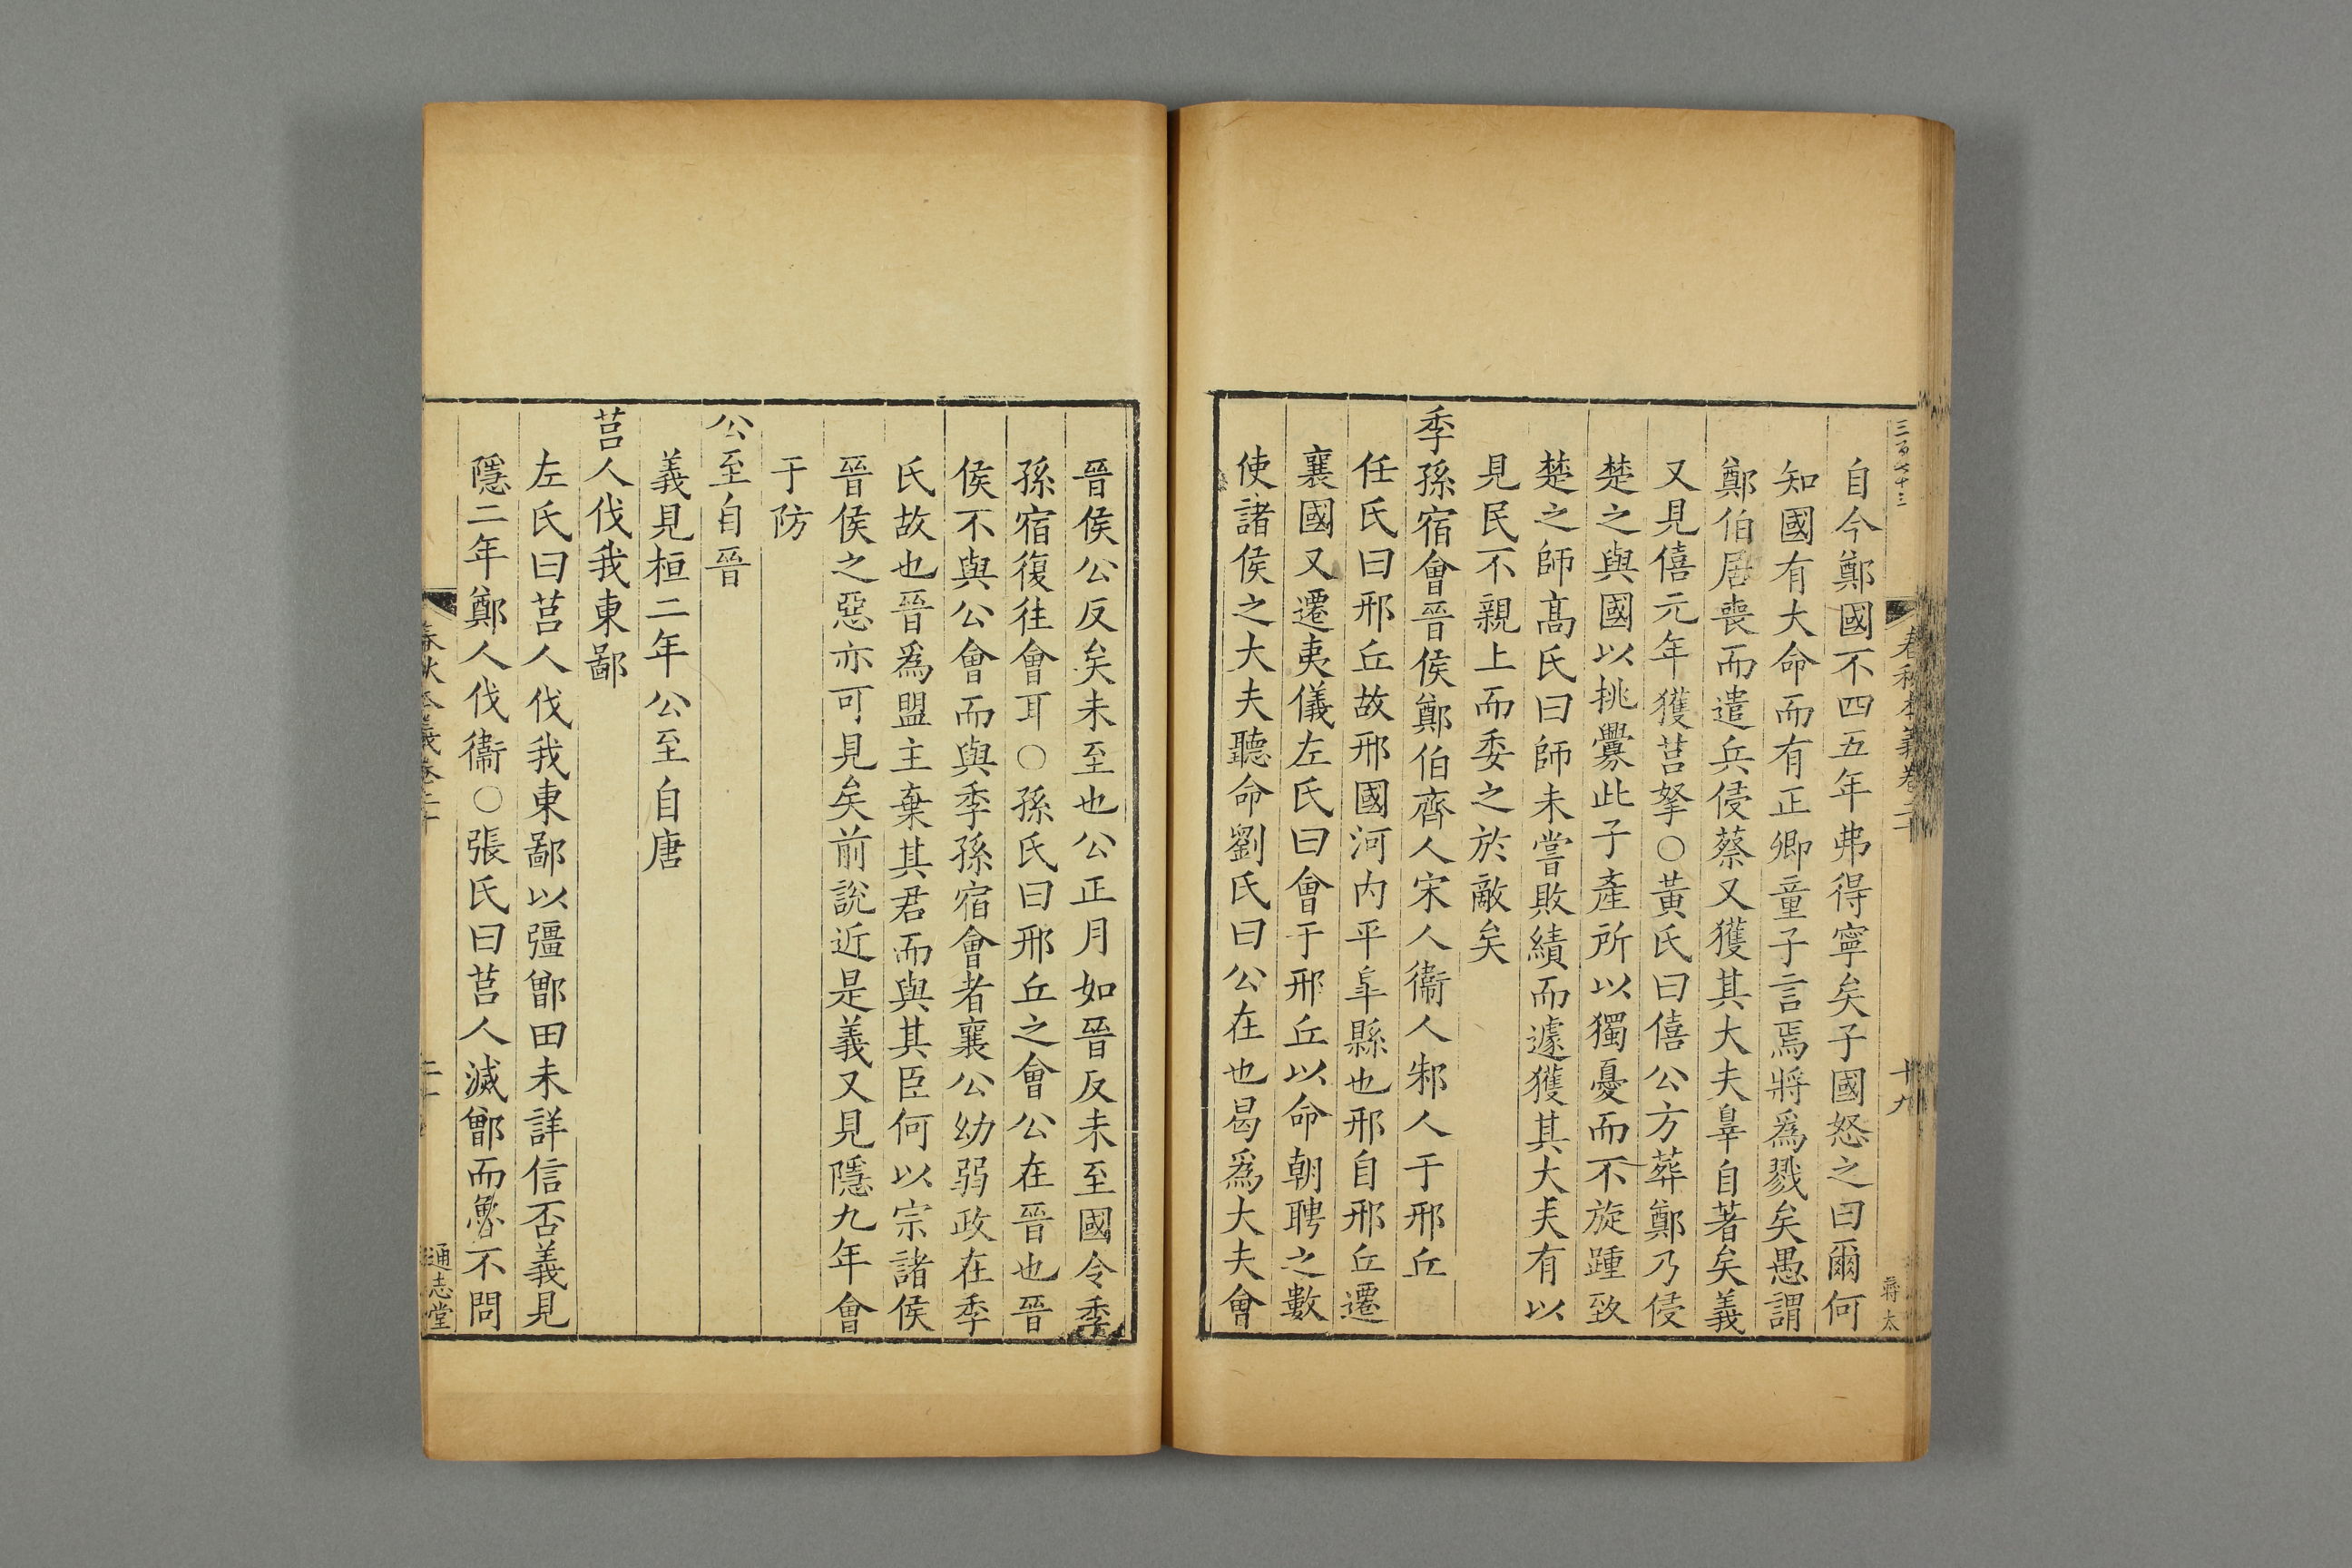 三百七十三
春秋本義卷二十
十九
蔣太
自今鄭國不四五年弗得寧矣子國怒之曰爾何
知國有大命而有正卿童子言焉將爲戮矣愚謂
鄭伯居喪而遣兵侵蔡又獲其大夫辠自著矣義
又見僖元年獲莒拏○黃氏曰僖公方葬鄭乃侵
楚之與國以挑釁此子產所以獨憂而不旋踵致
楚之師髙氏曰師未嘗敗績而遽獲其大夫有以
見民不親上而委之於敵矣
季孫宿會晉侯鄭伯齊人宋人衞人邾人于邢丘
任氏曰邢丘故邢國河内平臯縣也邢自邢丘遷
襄國又遷夷儀左氏曰會于邢丘以命朝聘之數
使諸侯之大夫聽命劉氏曰公在也曷爲大夫會
晉侯公反矣未至也公正月如晉反未至國令季
孫宿復往會耳○孫氏曰邢丘之會公在晉也晉
侯不與公會而與季孫宿會者襄公幼弱政在季
氏故也晉爲盟主棄其君而與其臣何以宗諸侯
晉侯之惡亦可見矣前說近是義又見隱九年會
于防
公至自晉
義見桓二年公至自唐
莒人伐我東鄙
左氏曰莒人伐我東鄙以彊鄫田未詳信否義見
隱二年鄭人伐衞○張氏曰莒人滅鄫而魯不問
春秋本義卷二十
二十
通志堂